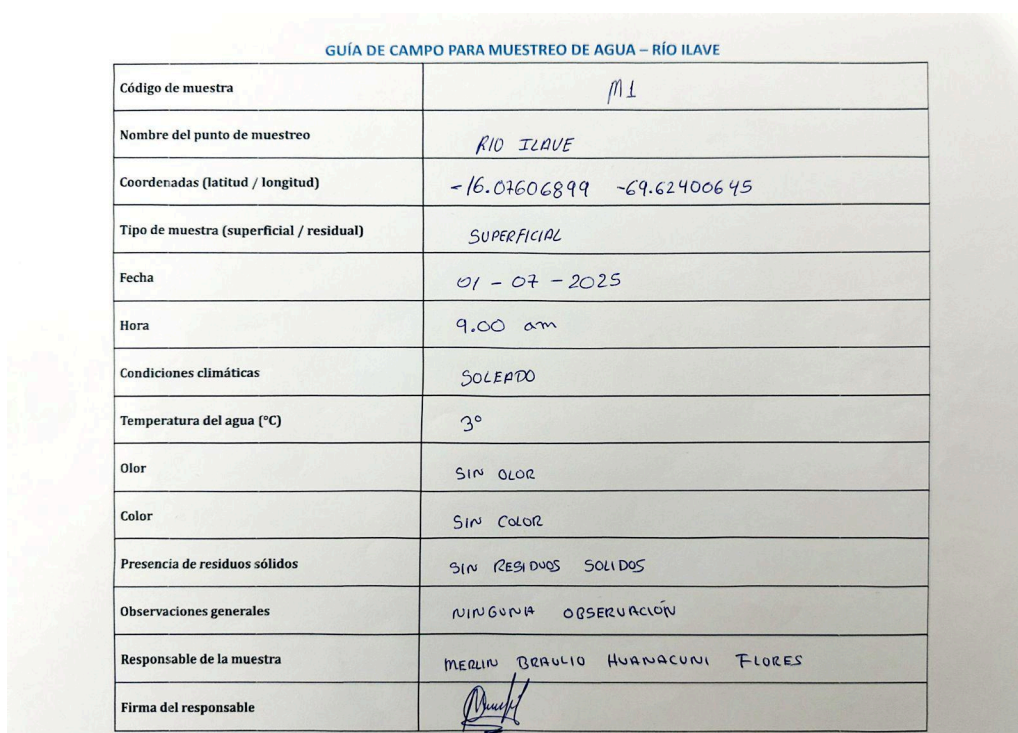 GUÍA DE CAMPO PARA MUESTREO DE AGUA – RÍO ILAVE
Código de muestra M1
Nombre del punto de muestreo RIO ILAVE
Coordenadas (latitud / longitud) -16.07606899 -69.62400645
Tipo de muestra (superficial / residual) SUPERFICIAL
Fecha 01 - 07 - 2025
Hora 9.00 am
Condiciones climáticas SOLEADO
Temperatura del agua (°C) 3°
Olor SIN OLOR
Color SIN COLOR
Presencia de residuos sólidos SIN RESIDUOS SOLIDOS
Observaciones generales NINGUNA OBSERVACIÓN
Responsable de la muestra MERLIN BRAULIO HUANACUNI FLORES
Firma del responsable